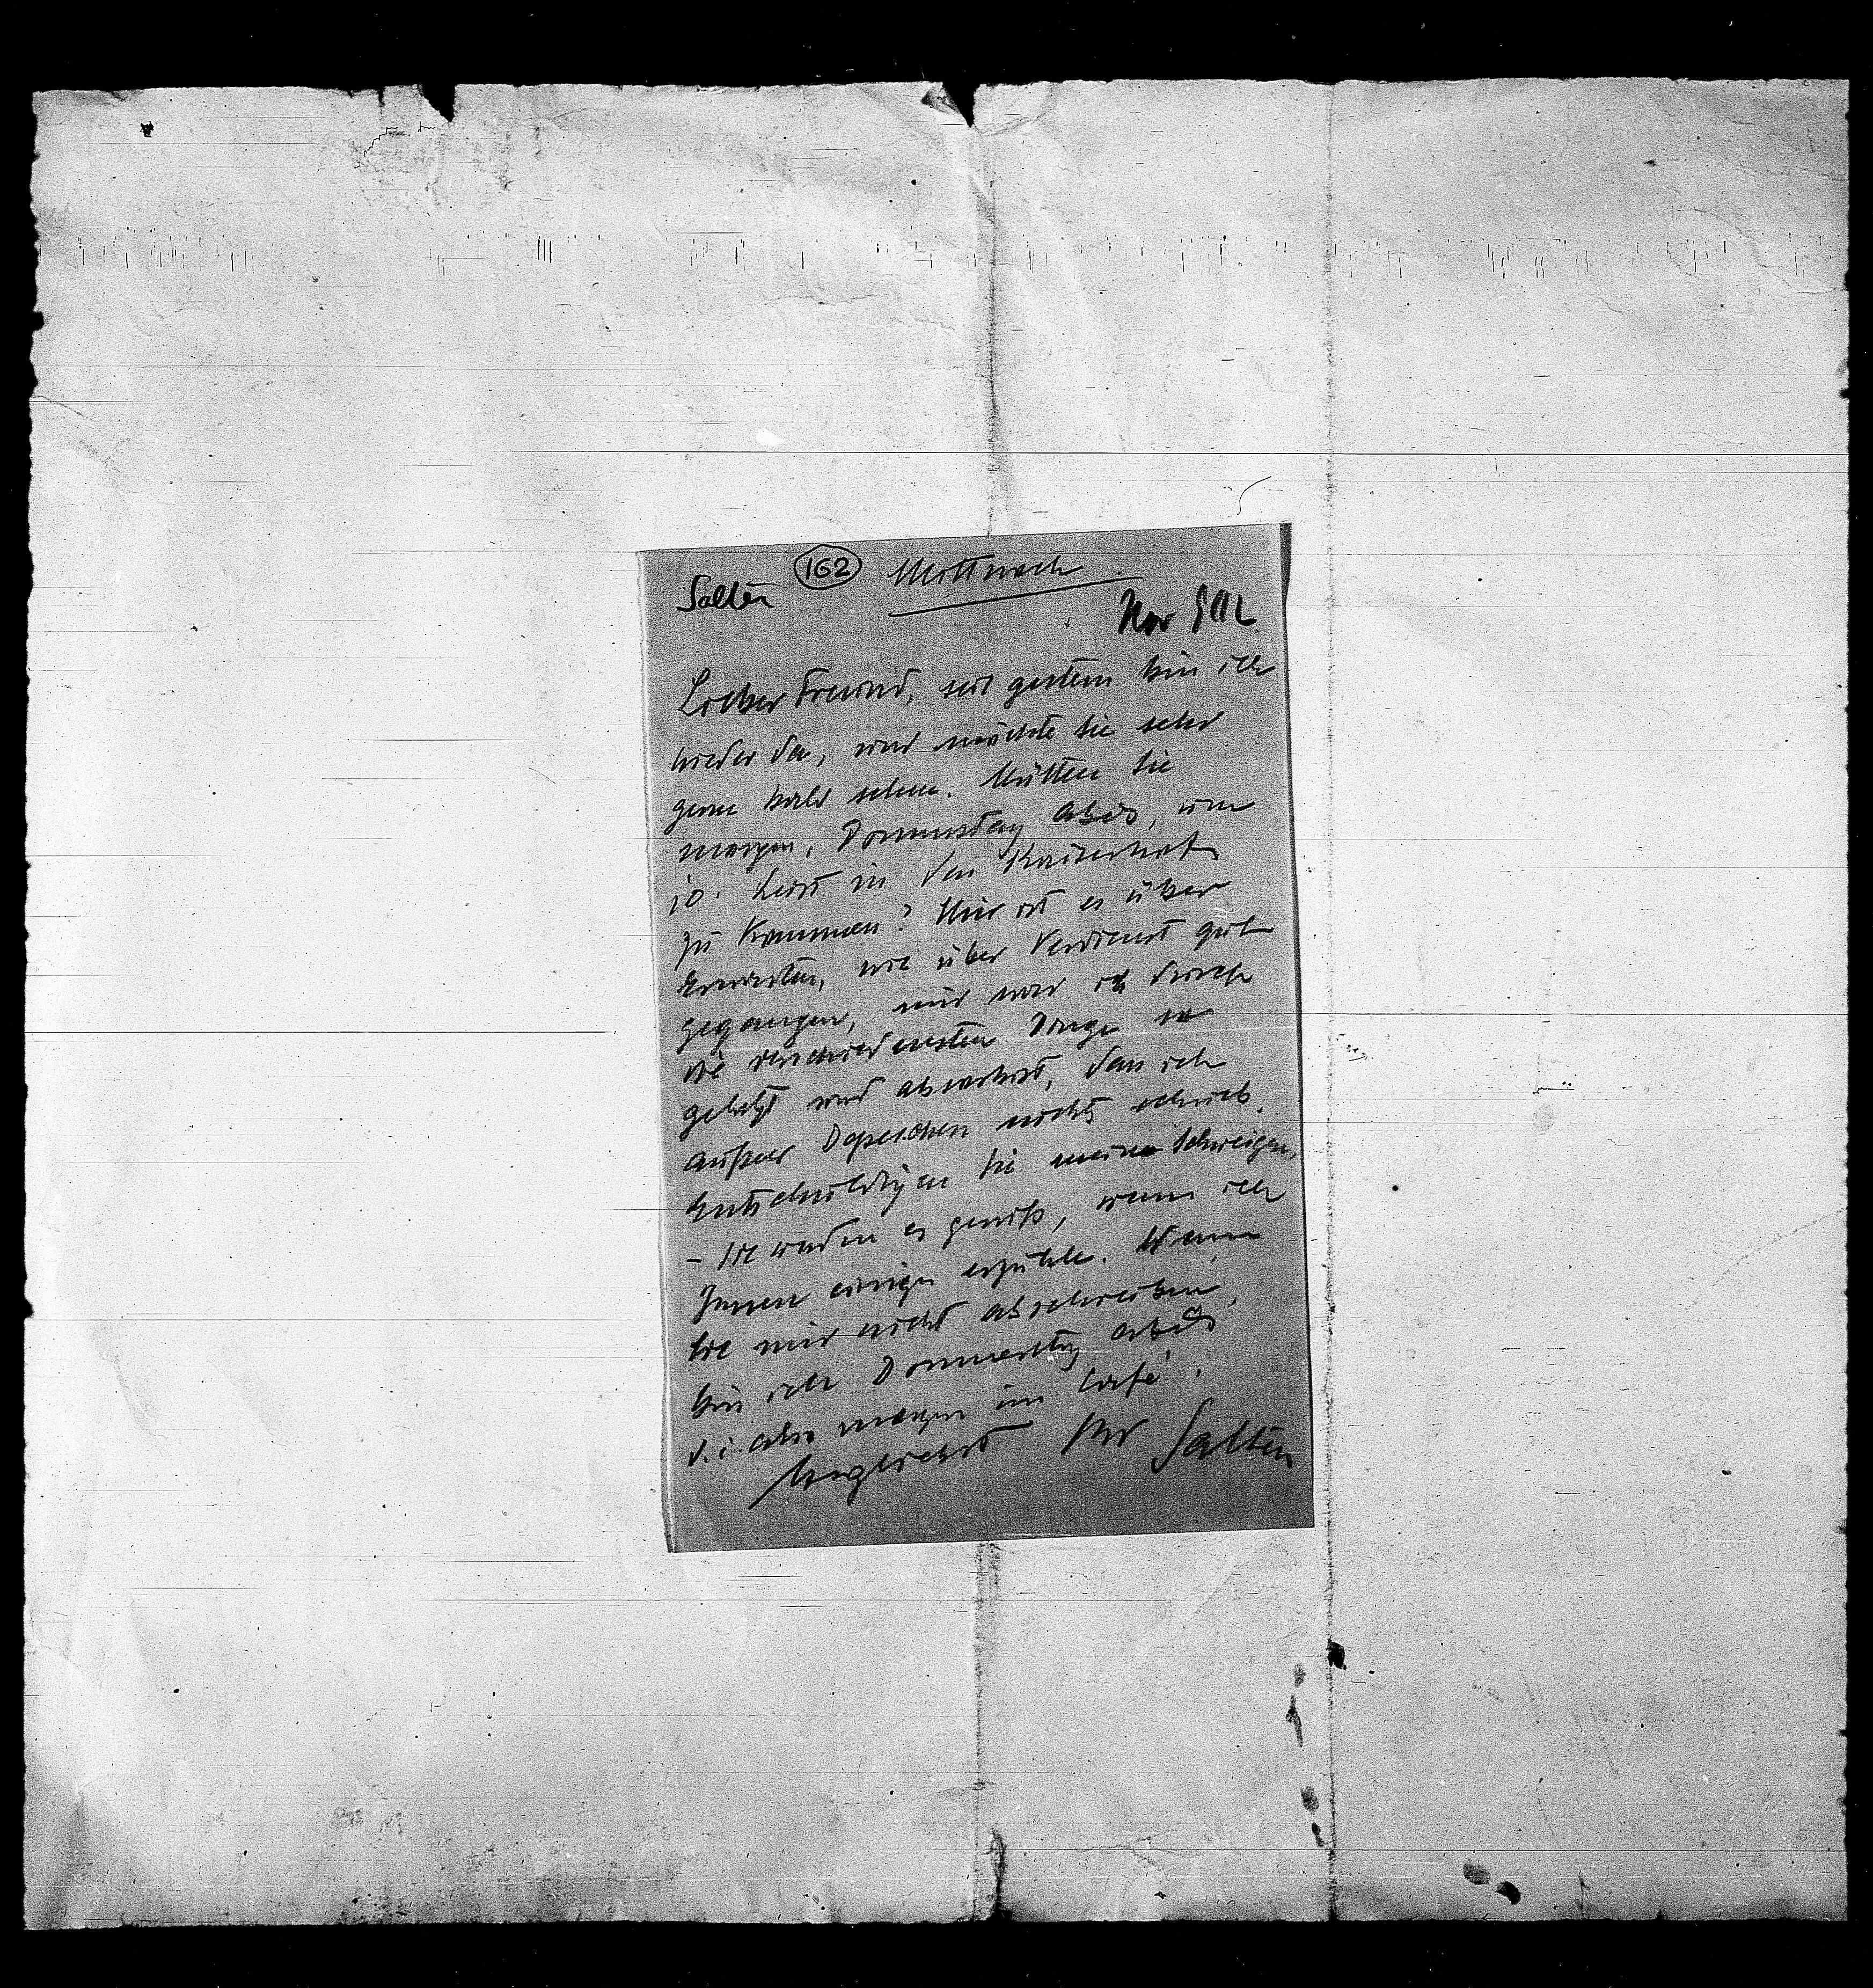 162
Mittwoch
Salten
Nov 902
Lieber Freund, seit gestern bin ich
wieder da, und möchte Sie sehr
gerne bald sehen. Wollten Sie
morgen, Donnerstag Abds, um
10. in den Kaiserhof
zu kommen? Mir ist es über
Erwarten, wie über Verdienst gut
gegangen, und war ich durch
die verschiedensten Dinge so
gehetzt und absorbirt, dass ich
außer Depeschen nichts schrieb.
Entschuldigen Sie mein Schweigen,
– Sie werden es gewiß, wenn ich
Ihnen einiges erzähle. Wenn
Sie mir nicht abschreiben,
bin ich Donnerstag Abds
d. i. also morgen im Café.
Herzlichst Ihr Salten